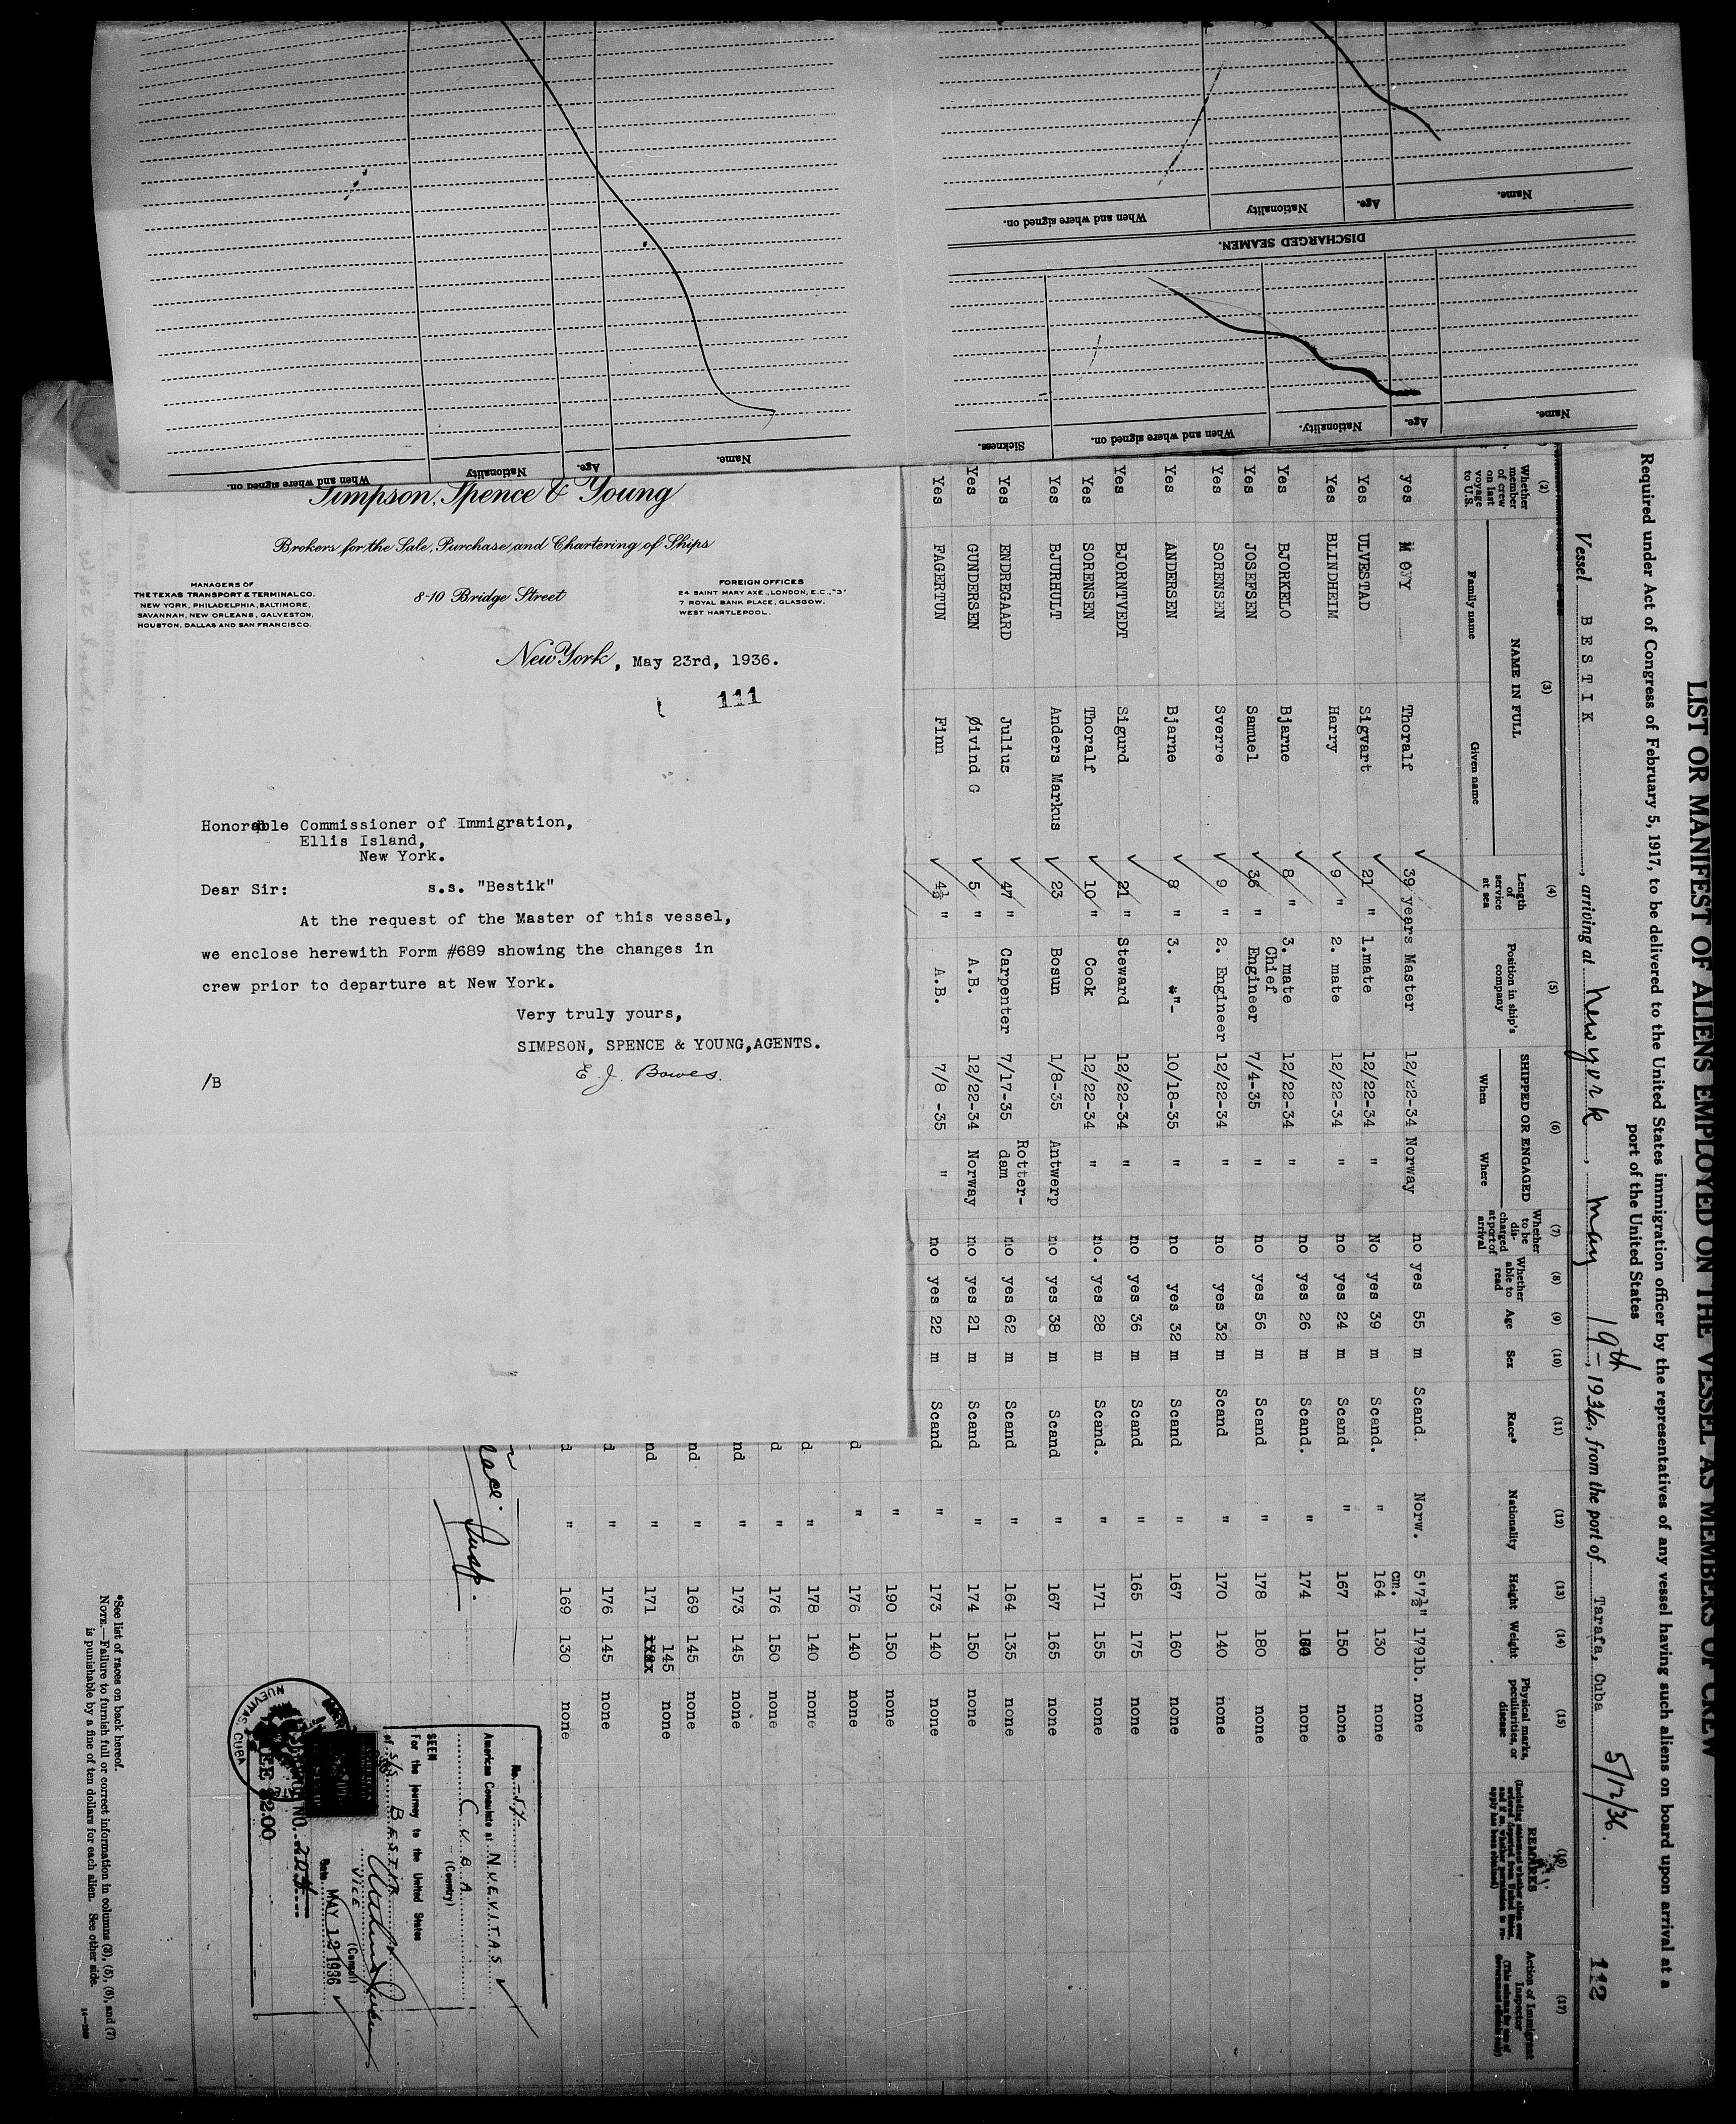 Name.
Age.
Nationality
When and where signed on.
DISCHARGED SEAMEN.
Name.
Age.
Nationality.
When and where signed on.
Sickness.
Name.
Age.
Nationality
When and where signed on.
Simpson, Spence & Young
Brokers for the Sale, Purchase and Chartering of Ships
MANAGERS OF
THE TEXAS TRANSPORT & TERMINAL CO.
NEW YORK, PHILADELPHIA, BALTIMORE,
SAVANNAH, NEW ORLEANS, GALVESTON,
HOUSTON, DALLAS AND SAN FRANCISCO.
8-10 Bridge Street
FOREIGN OFFICES
24 SAINT MARY AXE., LONDON, E.C., "3"
7 ROYAL BANK PLACE, GLASGOW.
WEST HARTLEPOOL.
New York, May 23rd, 1936.
111
Honorable Commissioner of Immigration,
Ellis Island,
New York.
Dear Sir: s.s. "Bestik"
At the request of the Master of this vessel,
we enclose herewith Form #689 showing the changes in
crew prior to departure at New York.
Very truly yours,
SIMPSON, SPENCE & YOUNG, AGENTS.
E. J. Bowes.
/B
LIST OR MANIFEST OF ALIENS EMPLOYED ON THE VESSEL AS MEMBERS OF CREW
Required under Act of Congress of February 5, 1917, to be delivered to the United States immigration officer by the representatives of any vessel having such aliens on board upon arrival at a
port of the United States
Vessel BESTIK, arriving at New york, May 19th, 1936, from the port of Tarafa, Cuba 5/12/36.
112
(2) (3) (4) (5) (6) (7) (8) (9) (10) (11) (12) (13) (14) (15) (16) (17)
Whether member of crew on last voyage to U.S. NAME IN FULL Family name Given name Length of service at sea Position in ship's company SHIPPED OR ENGAGED When Where Whether to be discharged at port of arrival Whether able to read Age Sex Race* Nationality Height Weight Physical marks, peculiarities, or disease REMARKS Action of Immigrant Inspector
yes Thoralf 39 years Master 12/22-34 Norway no yes 55 m Scand. Norw. 5'7½" 179lb. none
Yes ULVESTAD Sigvart 21 " 1.mate 12/22-34 " No yes 39 m Scand. " cm. 164 130 none
Yes BLINDHEIM Harry 9 " 2. mate 12/22-34 " no yes 24 m Scand " 167 150 none
Yes BJORKELO Bjarne 8 " 3. mate 12/22-34 " no yes 26 m Scand. " 174 none
Yes JOSEFSEN Samuel 36 " Chief Engineer 7/4-35 " no yes 56 m Scand " 178 180 none
Yes SORENSEN Sverre 9 " 2. Engineer 12/22-34 " no yes 32 m Scand " 170 140 none
Yes ANDERSEN Bjarne 8 " 3. -"- 10/18-35 " no yes 32 m Scand " 167 160 none
Yes BJORNTVEDT Sigurd 21 " Steward 12/22-34 " no yes 36 m Scand " 165 175 none
Yes SORENSEN Thoralf 10 " Cook 12/22-34 " no. yes 28 m Scand. " 171 155 none
Yes BJURHULT Anders Markus 23 Bosun 1/8-35 Antwerp no yes 38 m Scand " 167 165 none
Yes ENDREGAARD Julius 47 " Carpenter 7/17-35 Rotter-dam no yes 62 m Scand " 164 135 none
Yes GUNDERSEN Øivind G 5 " A.B. 12/22-34 Norway no yes 21 m Scand " 174 150 none
Yes FAGERTUN Finn 4½ " A.B. 7/8 -35 " no yes 22 m Scand " 173 140 none
" 190 150 none
d " 176 140 none
d. " 178 140 none
d " 176 150 none
nd " 173 145 none
nd " 169 145 none
nd " 171 145 none
d " 176 145 none
d " 169 130 none
No. 57
American Consulate at NUEVITAS
CUBA
(Country)
SEEN
For the journey to the United States
of S/S BESTIK
VICE (Consul)
Date MAY 12 1936
NO. 204
FEE $2.00
NUEVITAS, CUBA
*See list of races on back hereof.
NOTE.—Failure to furnish full or correct information in columns (3), (5), (6), and (7)
is punishable by a fine of ten dollars for each alien. See other side.